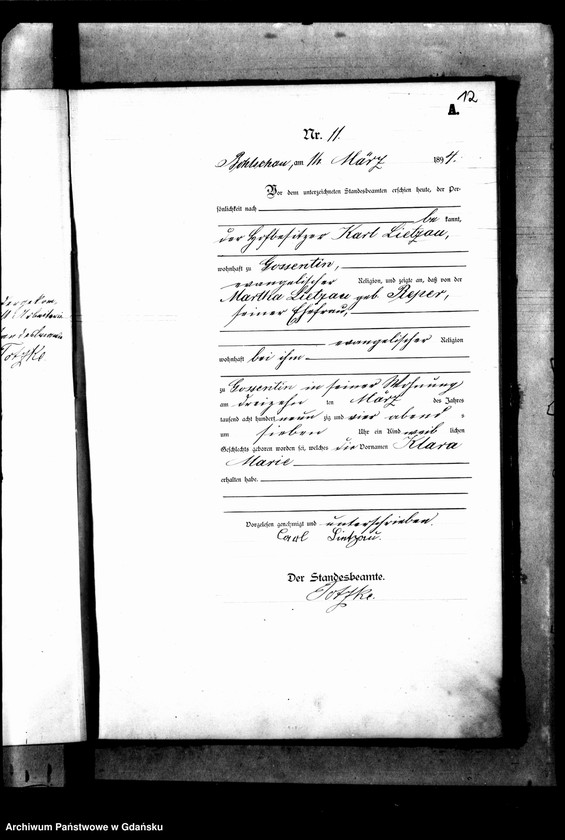 12
A.
Nr. 11.
Bohlschau, am 14 März 1894.
Vor dem unterzeichneten Standesbeamten erschien heute, der Per-
sönlichkeit nach
be kannt,
der Hofbesitzer Karl Lietzau,
wohnhaft zu Gossentin,
evangelischer Religion, und zeigte an, daß von der
Martha Lietzau geb. Reper,
seiner Ehefrau,
evangelischer Religion
wohnhaft bei ihm
zu Gossentin in seiner Wohnung
am dreizehn ten März des Jahres
tausend acht hundert neun zig und vier abend s
um sieben Uhr ein Kind weib lichen
Geschlechts geboren worden sei, welches die Vornamen Klara
Marie
erhalten habe.
Vorgelesen genehmigt und unterschrieben.
Carl Lietzau.
Der Standesbeamte.
Totzke.
Totzke
Archiwum Państwowe w Gdańsku